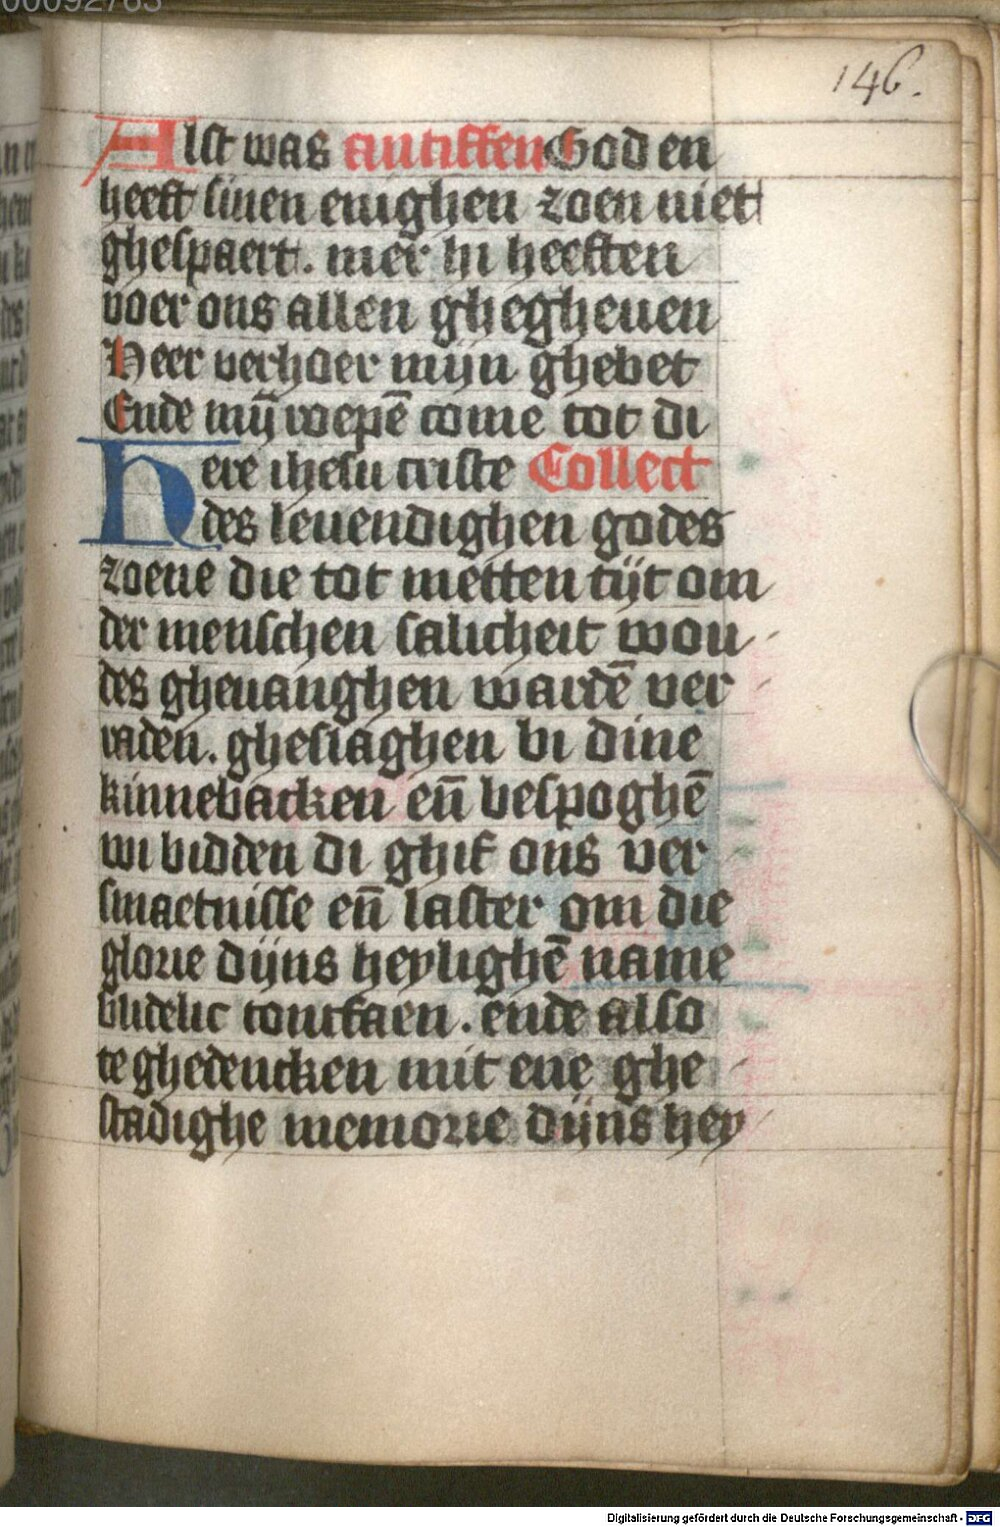 00092763
146.
Alst was antiffen God en
heeft sinen enighen zoen niet
ghespaert. mer hi heeften
voer ons allen ghegheuen
Heer verhoer mijn ghebet
Ende mij̄ roepē come tot di
Here ihesu criste Collect
des leuendighen godes
zoene die tot metten tijt om
der menschen salicheit wou
des gheuanghen wardē ver
raden. gheslaghen bi dine
kinnebacken en̄ bespoghē
wi bidden di ghif ons ver
smaetnisse en̄ laster om die
glorie dijns heylighē name
blidelic tontfaen. ende also
te ghedencken mit ene ghe
stadighe memorie dijns hey
Digitalisierung gefördert durch die Deutsche Forschungsgemeinschaft - DFG